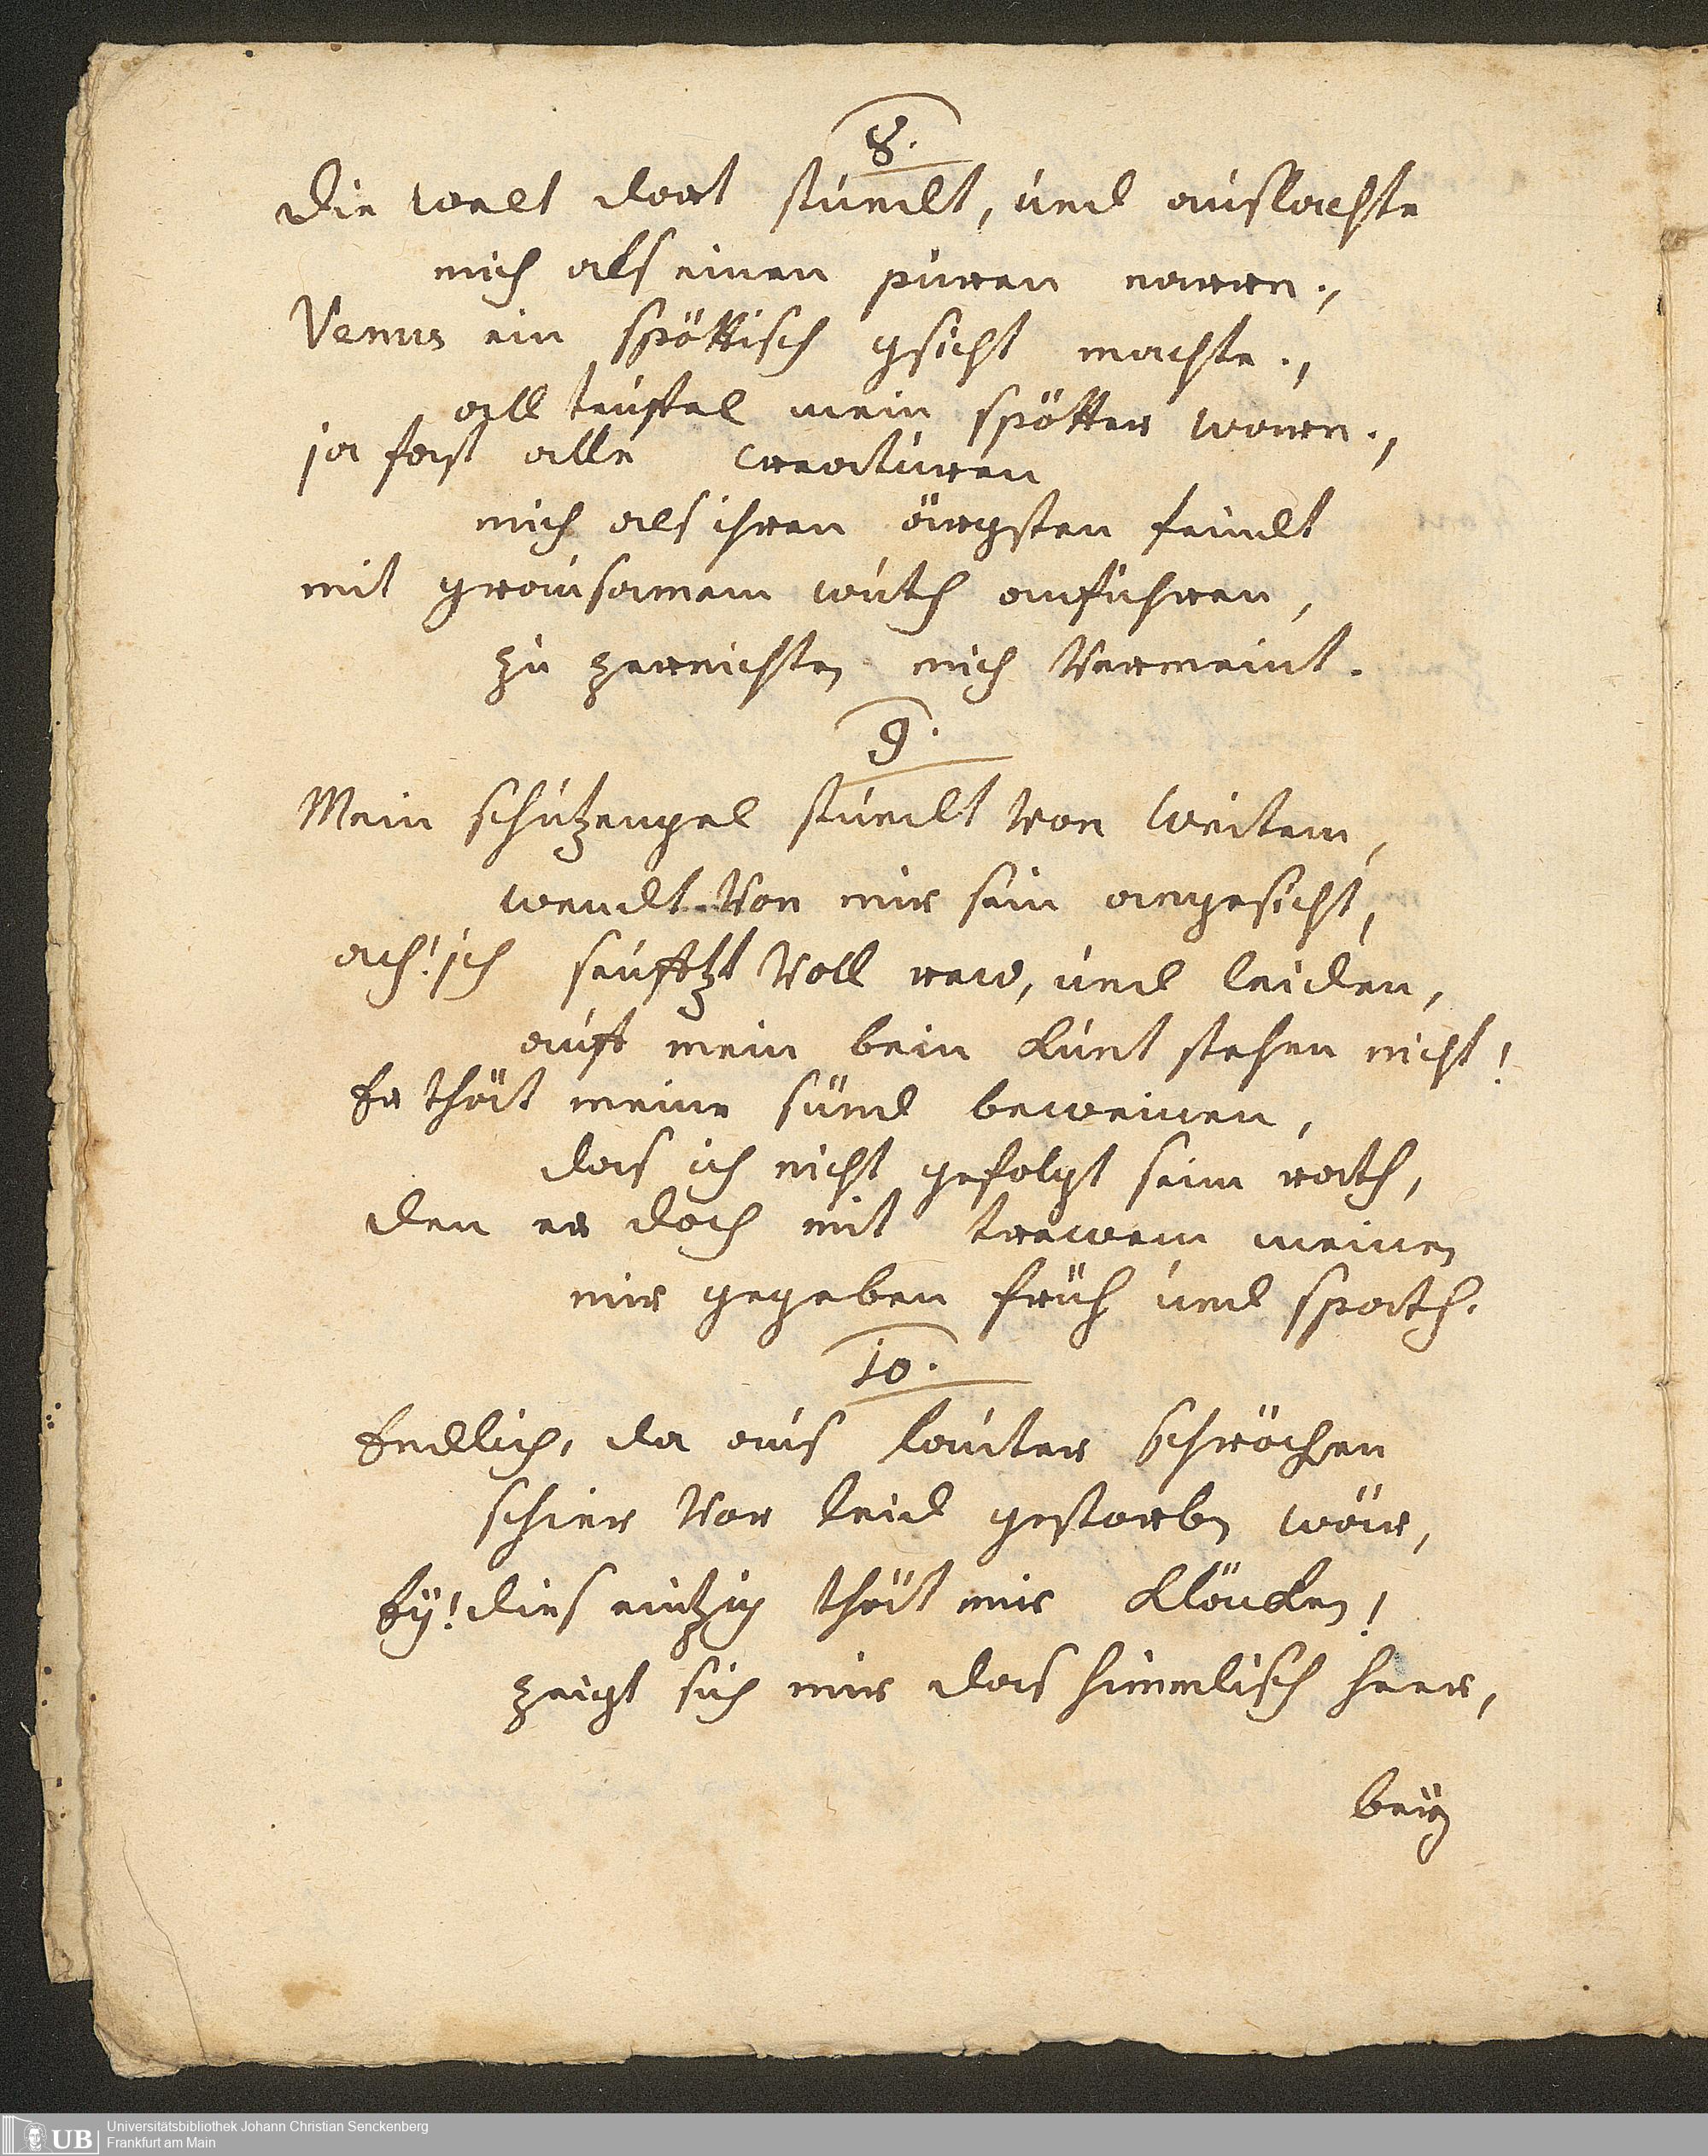 8.
Die welt dort stundt, und auslachte
mich als einen puren narrn.,
Venus ein spöttisch gsicht machte.,
all teuffel mein spötter warn.,
ja fast alle Creaturen
mich als ihren ärgsten feindt
mit grausamem wuth anfuhren,
zu zernichten mich Vermeint.
9.
Mein schutzengel stundt von weitem,
wendt Von mir sein angesicht,
ach! ich seufftzt Voll rew, und leiden,
auff mein bein kunt stehen nicht!
Er thät meine sünd beweinen,
das ich nicht gefolgt seim rath,
den er doch mit trewem meinen
mir gegeben früh und spath.
10.
Endlich, da aus lauter schwächen
schier Vor leid gestorben wär,
Ey! dies eintzig thät mir kläcken!
zeigt sich mir das himmlisch heer,
beÿ
UB
Universitätsbibliothek Johann Christian Senckenberg
Frankfurt am Main